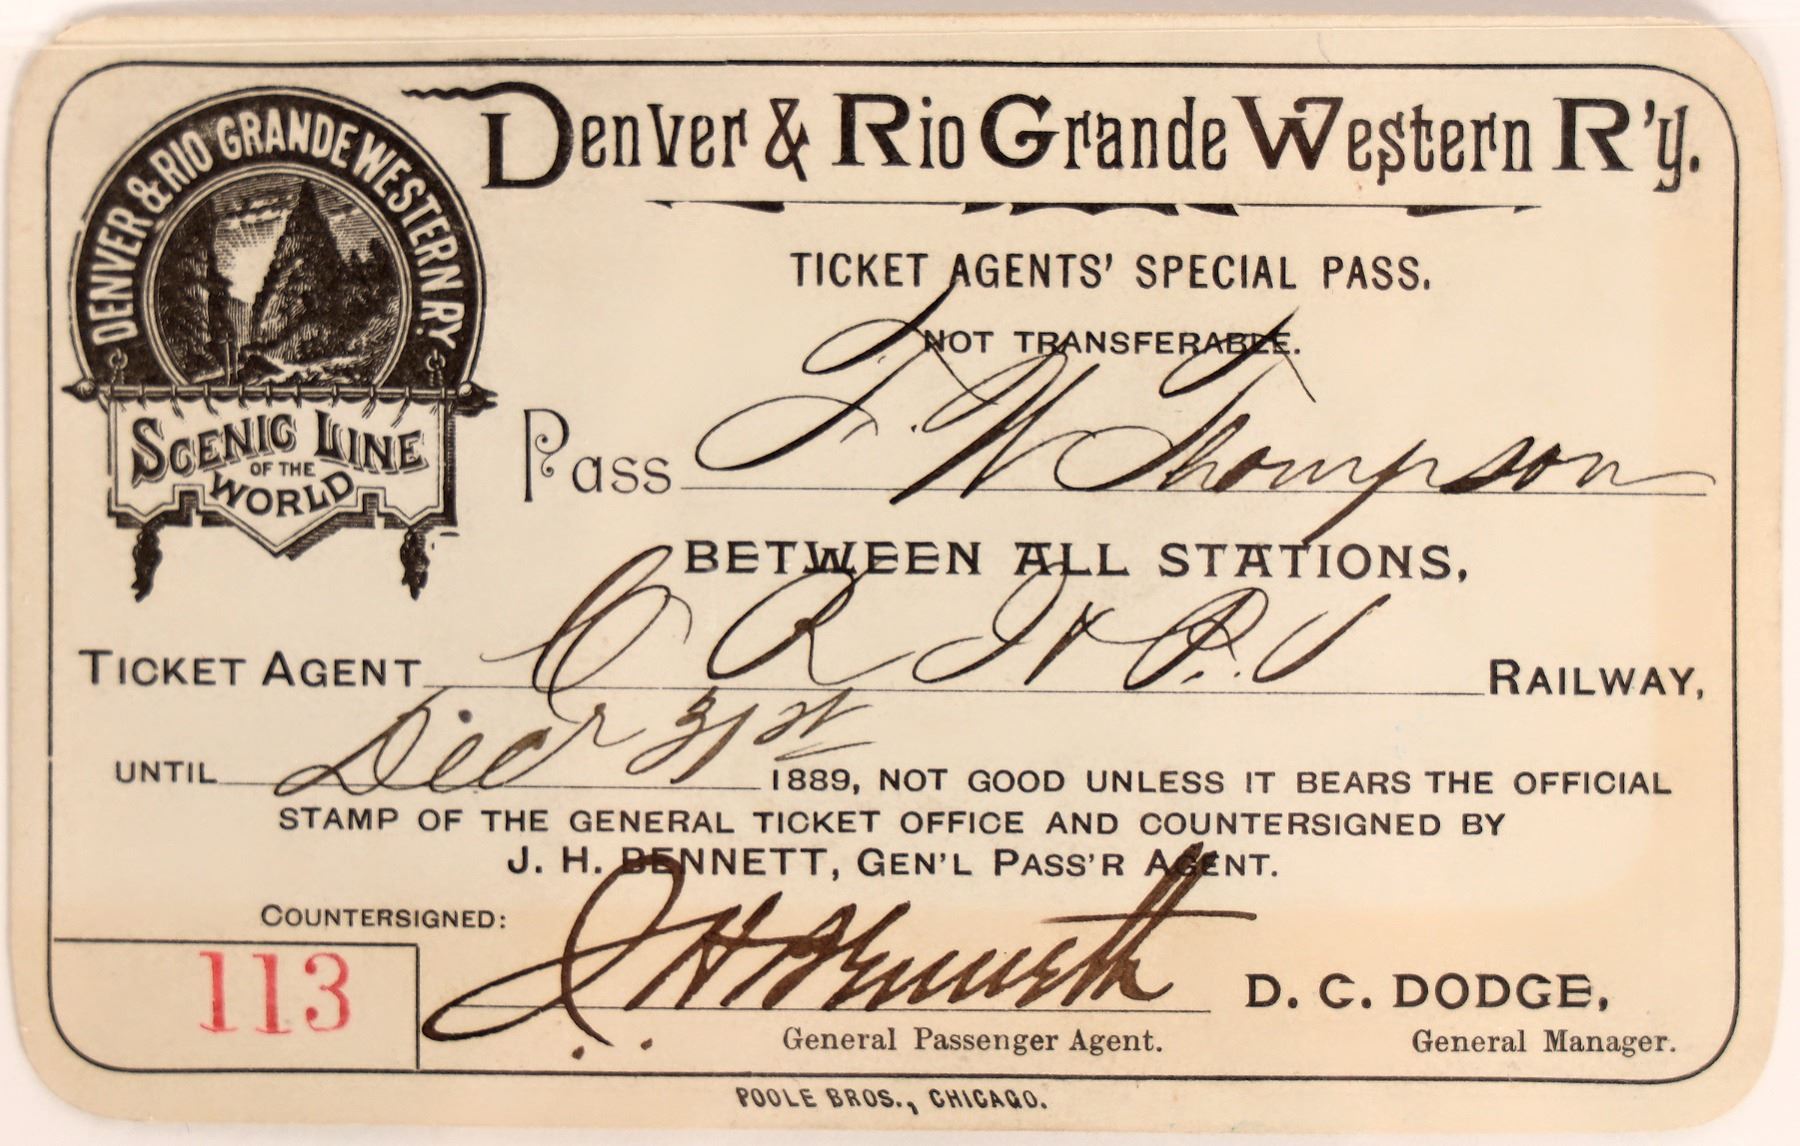 DENVER & RIO GRANDE WESTERN RY.
SCENIC LINE
OF THE
WORLD
Denver & Rio Grande Western R'y.
TICKET AGENTS' SPECIAL PASS.
NOT TRANSFERABLE.
Pass F. W Thompson
BETWEEN ALL STATIONS,
TICKET AGENT C R I & P. RAILWAY,
UNTIL Decr 31st 1889, NOT GOOD UNLESS IT BEARS THE OFFICIAL
STAMP OF THE GENERAL TICKET OFFICE AND COUNTERSIGNED BY
J. H. BENNETT, GEN'L PASS'R AGENT.
COUNTERSIGNED:
113
J. H Bennett
D. C. DODGE,
General Passenger Agent.
General Manager.
POOLE BROS., CHICAGO.